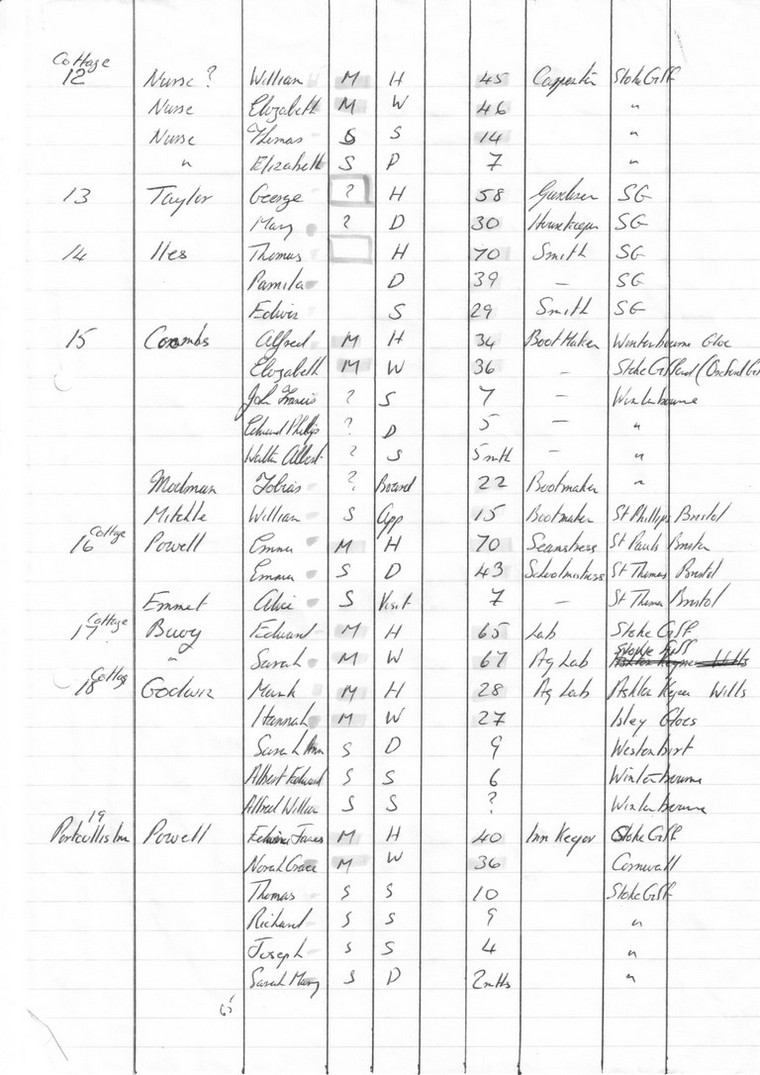 Cottage
12 Nurse ? William M H 45 Carpenter Stoke Giff
Nurse Elizabeth M W 46 "
Nurse Thomas S S 14 "
" Elizabeth S D 7 "
13 Taylor George ? H 58 Gardener SG
Mary ? D 30 Housekeeper SG
14 Iles Thomas H 70 Smith SG
Pamila D 39 — SG
Edwin S 29 Smith SG
15 Coombs Alfred M H 34 Boot Maker Winterbourne Gloc
Elizabeth M W 36 — Stoke Gifford
John Francis ? S 7 — Winterbourne
Edmund Phillip ? D 5 — "
Walter Albert ? S 5mth — "
Modman Tobias ? Board 22 Bootmaker "
Mitchle William S App 15 Bootmaker St Phillips Bristol
Cottage
16 Powell Emma M H 70 Seamstress St Pauls Bristol
Emma S D 43 Schoolmistress St Thomas Bristol
Emmet Alice S Visit 7 — St Thomas Bristol
Cottage
17 Buvy Edward M H 65 Lab Stoke Giff
Stoke Giff
" Sarah M W 67 Ag Lab Ashton Keynes Wilts
Cottag
18 Godwin Mark M H 28 Ag Lab Ashton Keynes Wilts
Hannah M W 27 Isley Glocs
Sarah Ann S D 9 Westonbirt
Albert Edward S S 6 Winterbourne
Alfred William S S ? Winterbourne
19
Portcullis Inn Powell James M H 40 Inn Keeper Stoke Giff
Norah Grace M W 36 Cornwall
Thomas S S 10 Stoke Giff
Richard S S 9 "
Joseph S S 4 "
Sarah Mary S D 2mths "
65